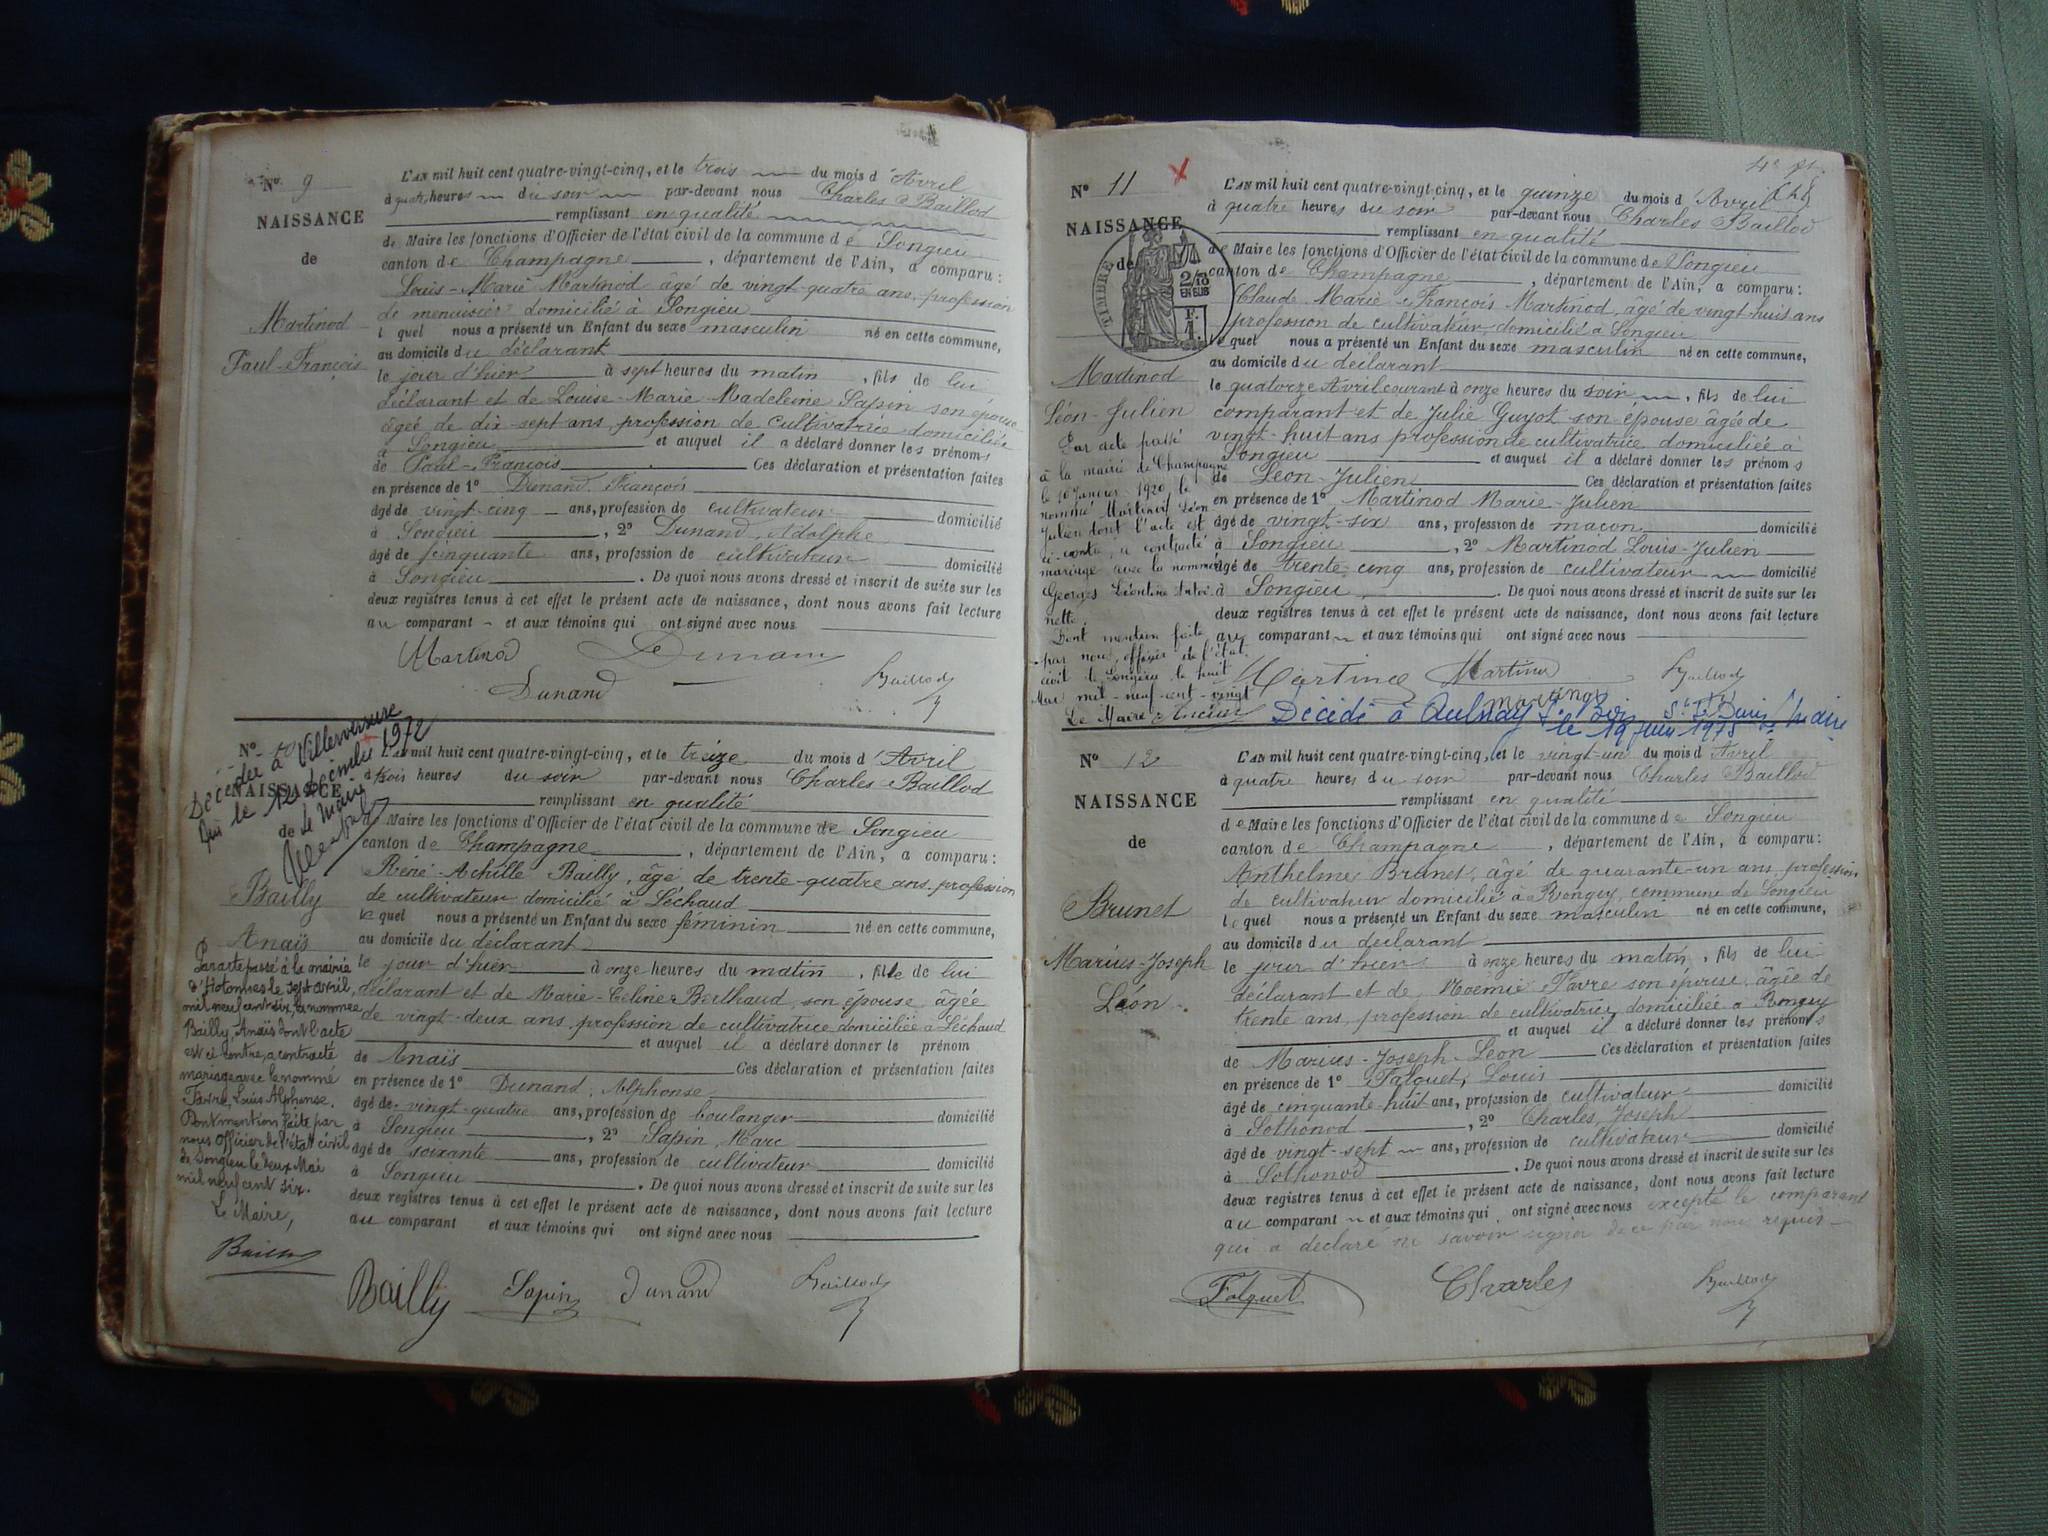 No. 9
NAISSANCE
de
Martinod
Paul-François
L'AN mil huit cent quatre-vingt-cinq, et le trois du mois d'Avril
à quatre heures du soir par-devant nous Charles Baillod
remplissant en qualité
de Maire les fonctions d'Officier de l'état civil de la commune de Songieu
canton de Champagne, département de l'Ain, a comparu :
Louis-Marie Martinod âgé de vingt-quatre ans, profession
de menuisier domicilié à Songieu
lequel nous a présenté un Enfant du sexe masculin né en cette commune,
au domicile du déclarant
le jour d'hier à sept heures du matin, fils de lui
déclarant et de Louise-Marie-Madeleine Sapin son épouse
âgée de dix-sept ans, profession de cultivatrice domiciliée
à Songieu et auquel il a déclaré donner les prénoms
de Paul-François Ces déclaration et présentation faites
en présence de 1° Dunand, François
âgé de vingt-cinq ans, profession de cultivateur domicilié
à Songieu, 2° Dunand, Adolphe
âgé de cinquante ans, profession de cultivateur domicilié
à Songieu. De quoi nous avons dressé et inscrit de suite sur les
deux registres tenus à cet effet le présent acte de naissance, dont nous avons fait lecture
au comparant et aux témoins qui ont signé avec nous
Martinod Dunand Baillod
Dunand
No. 10
NAISSANCE
de
Décédée à Villereversure
le 12 décembre 1972
Le Maire
Bailly
Anaïs
Par acte passé à la mairie
d'Hotonnes le sept avril
mil neuf cent six, la nommée
Bailly, Anaïs dont l'acte
est ci contre, a contracté
mariage avec le nommé
Favre, Louis Alphonse.
Dont mention faite par
nous Officier de l'état civil
de Songieu le deux Mai
mil neuf cent six.
Le Maire,
L'AN mil huit cent quatre-vingt-cinq, et le treize du mois d'Avril
à trois heures du soir par-devant nous Charles Baillod
remplissant en qualité
de Maire les fonctions d'Officier de l'état civil de la commune de Songieu
canton de Champagne, département de l'Ain, a comparu :
Réné-Achille Bailly, âgé de trente-quatre ans, profession
de cultivateur domicilié à Léchaud
lequel nous a présenté un Enfant du sexe féminin né en cette commune,
au domicile du déclarant
le jour d'hier à onze heures du matin, fille de lui
déclarant et de Marie-Céline Berthaud, son épouse, âgée
de vingt-deux ans, profession de cultivatrice domiciliée à Léchaud
et auquel il a déclaré donner le prénom
de Anaïs Ces déclaration et présentation faites
en présence de 1° Dunand, Alphonse
âgé de vingt-quatre ans, profession de boulanger domicilié
à Songieu, 2° Sapin, Marc
âgé de soixante ans, profession de cultivateur domicilié
à Songieu. De quoi nous avons dressé et inscrit de suite sur les
deux registres tenus à cet effet le présent acte de naissance, dont nous avons fait lecture
au comparant et aux témoins qui ont signé avec nous
Bailly Sapin Dunand Baillod
No 11
NAISSANCE
de
TIMBRE
2/10
EN SUS
F.
Martinod
Léon-Julien
Par acte passé
à la mairie de Champagne
le 10 Janvier 1920 le
nommé Martinod Léon
Julien dont l'acte est
ci-contre, a contracté
mariage avec la nommée
Georges Léontine Antoi
nette
Dont mention faite
par nous, officier de l'état
civil de Songieu le huit
Mai mil-neuf-cent-vingt
Le Maire
L'AN mil huit cent quatre-vingt-cinq, et le quinze du mois d'Avril
à quatre heures du soir par-devant nous Charles Baillod
remplissant en qualité
de Maire les fonctions d'Officier de l'état civil de la commune de Songieu
canton de Champagne, département de l'Ain, a comparu :
Claude Marie-François Martinod, âgé de vingt-huit ans
profession de cultivateur domicilié à Songieu
lequel nous a présenté un Enfant du sexe masculin né en cette commune,
au domicile du déclarant
le quatorze Avril courant à onze heures du soir, fils de lui
comparant et de Julie Guyot son épouse âgée de
vingt-huit ans profession de cultivatrice domiciliée à
Songieu et auquel il a déclaré donner les prénoms
de Léon-Julien Ces déclaration et présentation faites
en présence de 1° Martinod Marie-Julien
âgé de vingt-six ans, profession de maçon domicilié
à Songieu, 2° Martinod Louis-Julien
âgé de trente-cinq ans, profession de cultivateur domicilié
à Songieu. De quoi nous avons dressé et inscrit de suite sur les
deux registres tenus à cet effet le présent acte de naissance, dont nous avons fait lecture
au comparant et aux témoins qui ont signé avec nous
Martinod Martinod Baillod
Décédé à Aulnay s. Bois
le 19 juin 1975
No 12
NAISSANCE
de
Brunet
Marius-Joseph
Léon
L'AN mil huit cent quatre-vingt-cinq, et le vingt-un du mois d'Avril
à quatre heures du soir par-devant nous Charles Baillod
remplissant en qualité
de Maire les fonctions d'Officier de l'état civil de la commune de Songieu
canton de Champagne, département de l'Ain, a comparu :
Anthelme Brunet, âgé de quarante-un ans, profession
de cultivateur domicilié à Bongey, commune de Songieu
lequel nous a présenté un Enfant du sexe masculin né en cette commune,
au domicile du déclarant
le jour d'hier à onze heures du matin, fils de lui
déclarant et de Noémie Favre son épouse, âgée de
trente ans, profession de cultivatrice domiciliée à Bongey
et auquel il a déclaré donner les prénoms
de Marius-Joseph-Léon Ces déclaration et présentation faites
en présence de 1° Falquet, Louis
âgé de cinquante-huit ans, profession de cultivateur domicilié
à Sothonod, 2° Charles Joseph
âgé de vingt-sept ans, profession de cultivateur domicilié
à Sothonod. De quoi nous avons dressé et inscrit de suite sur les
deux registres tenus à cet effet le présent acte de naissance, dont nous avons fait lecture
au comparant et aux témoins qui ont signé avec nous excepté le comparant
qui a déclaré ne savoir signer de ce par nous requis
Falquet Charles Baillod